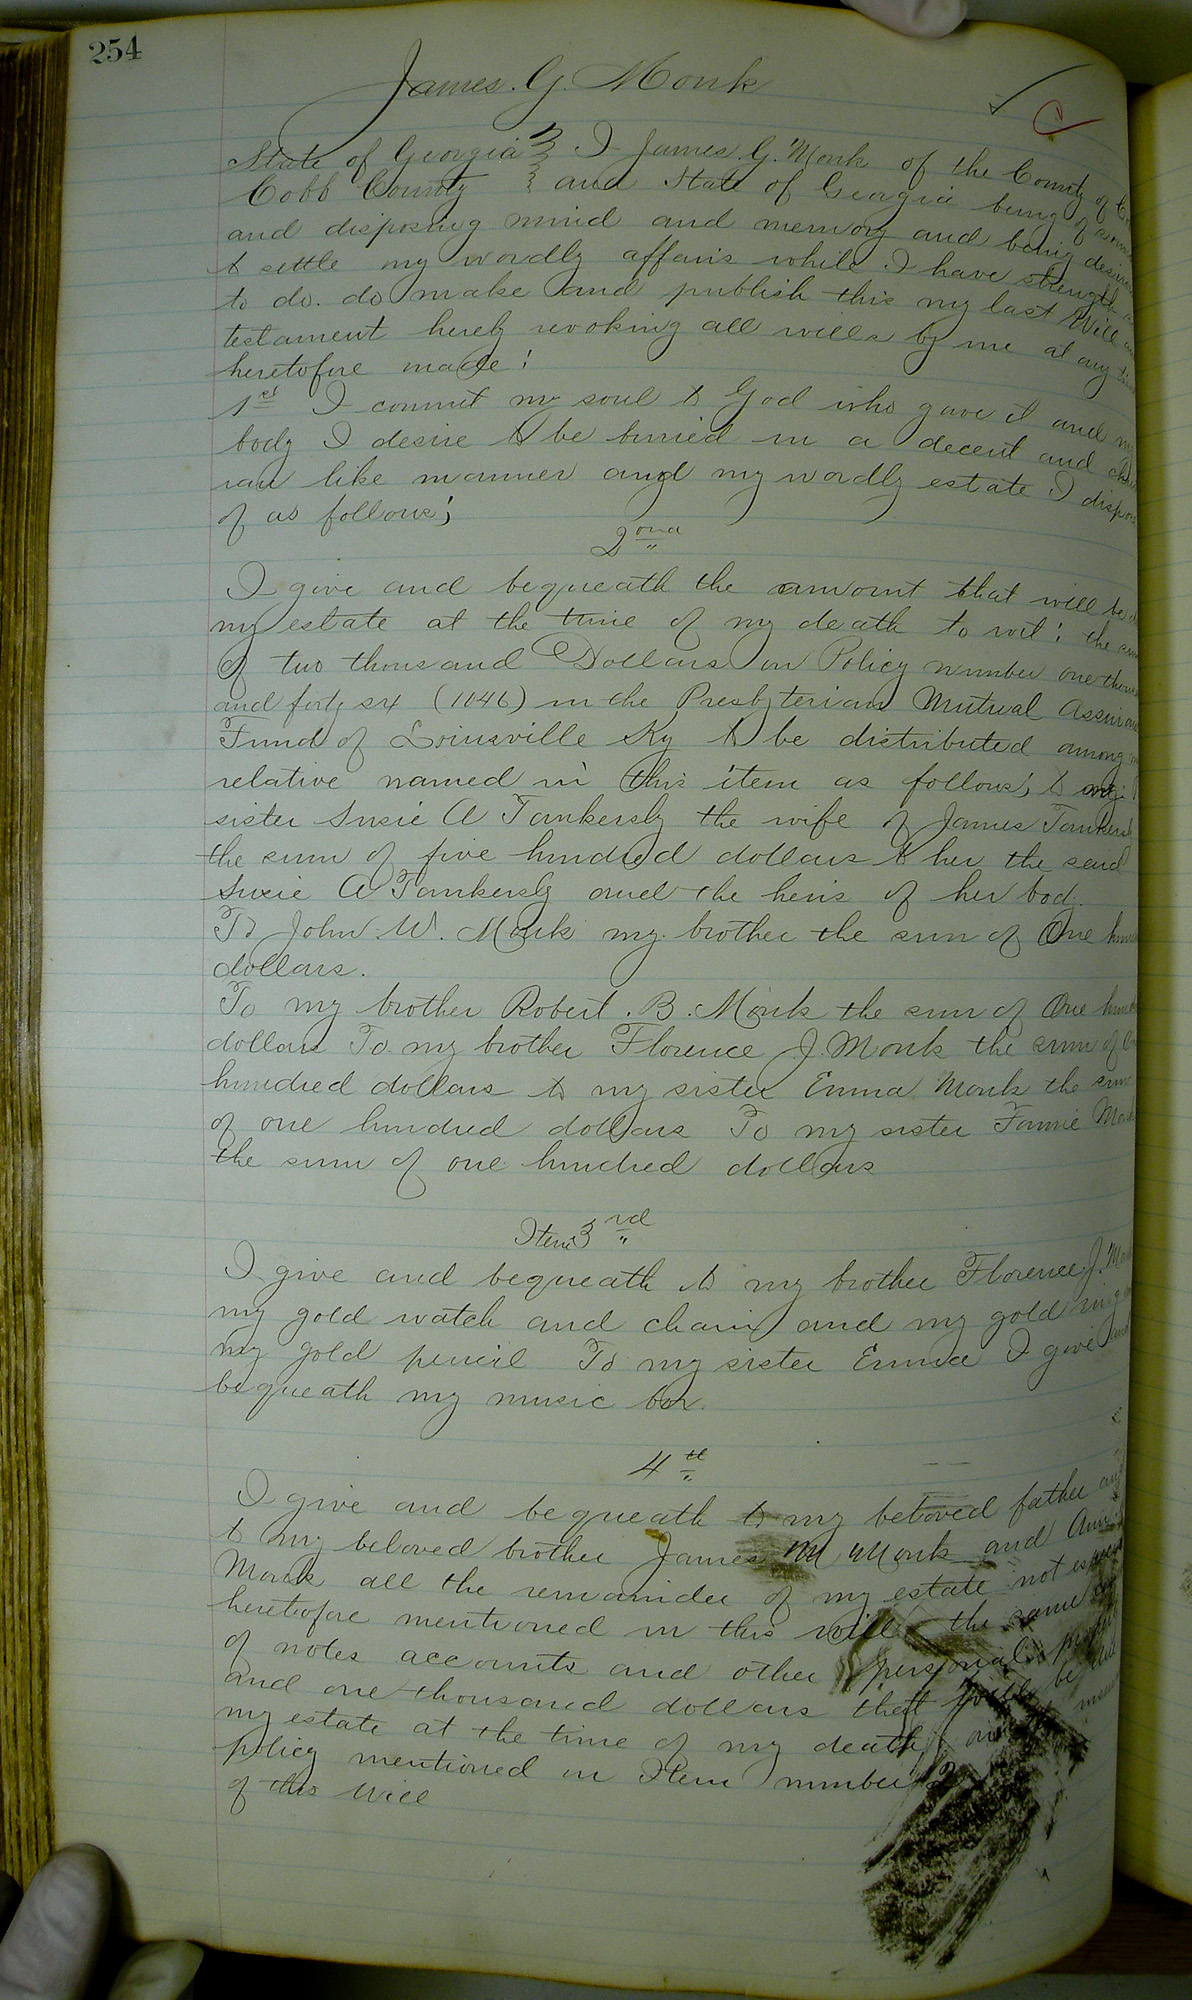 254
James. G. Monk
State of Georgia } I James. G. Monk of the County of
Cobb County } and State of Georgia being of
and disposing mind and memory and being
to settle my wordly affairs while I have strength
to do. do make and publish this my last Will
testament hereby revoking all wills by me at any
heretofore made!
1st I commit my soul to God who gave it and
body I desire to be buried in a decent and
like manner and my wordly estate I
of as follows;
2ond
I give and bequeath the amount that will be
my estate at the time of my death to wit: the
of two thousand Dollars on Policy number one
and forty six (1046) in the Presbyterian Mutual
Fund of Louisville Ky to be distributed among
relative named in this item as follows; to my
sister Susie A Tankersly the wife of James
the sum of five hundred dollars to her the said
Susie A Tankersly and the heirs of her bod.
To John W. Monk my brother the sum of One
dollars.
To my brother Robert. B. Monk the sum of One
dollars To my brother Florence J. Monk the sum of
hundred dollars to my sister Emma Monk the sum
of one hundred dollars To my sister Fannie
the sum of one hundred dollars
Item 3rd
I give and bequeath to my brother Florence J.
my gold watch and chain and my gold ring
my gold pencil To my sister Emma I give
bequeath my music box.
4th
I give and bequeath to my beloved father
to my beloved brother James M Monk and
Monk all the remainder of my estate not
heretofore mentioned in this will the same
of notes accounts and other personal
and one thousand dollars that will be
my estate at the time of my death on
policy mentioned in Item number 2
of this will